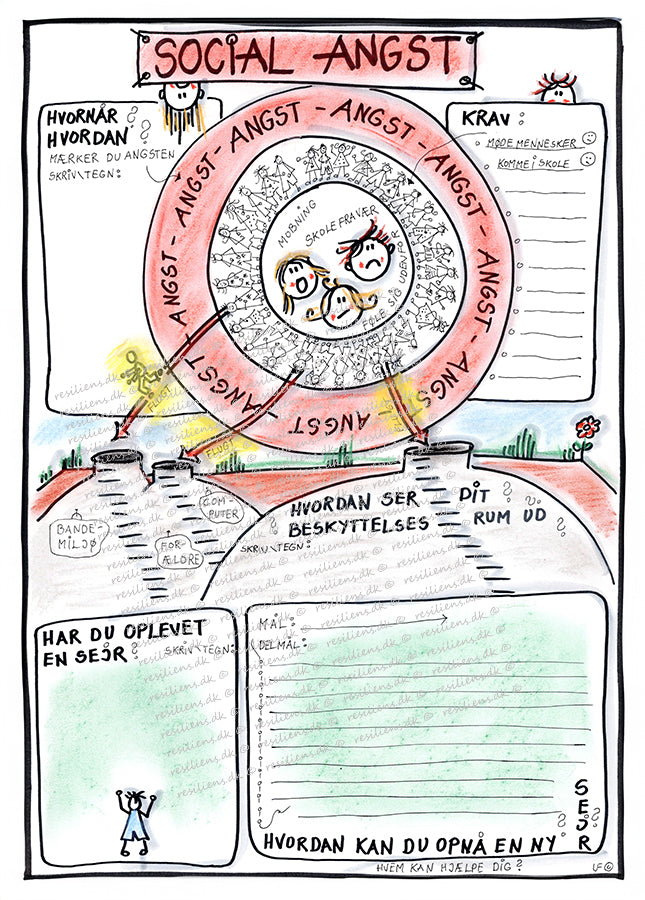 SOCIAL ANGST
HVORNÅR ?
HVORDAN ?
MÆRKER DU ANGSTEN
SKRIV\TEGN:
KRAV :
MØDE MENNESKER
KOMME I SKOLE
ANGST - ANGST - ANGST - ANGST - ANGST - ANGST - ANGST - ANGST - ANGST - ANGST
MOBNING
SKOLEFRAVÆR
FØLE SIG UDENFOR
FLUGT
FLUGT
BANDE-
MILJØ
FOR-
ÆLDRE
COM-
PUTER
HVORDAN SER DIT ?
BESKYTTELSES RUM UD ?
SKRIV\TEGN:
HAR DU OPLEVET
EN SEJR ? SKRIV\TEGN:
MÅL:
DELMÅL:
HVORDAN KAN DU OPNÅ EN NY ?
SEJR ?
HVEM KAN HJÆLPE DIG ?
UF©
resiliens.dk ©